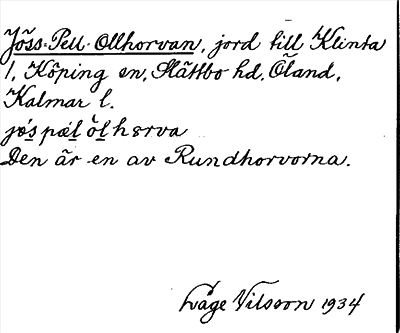 Jöss-Pell-Ollhorvan, jord till Klinta
1, Köping sn, Slättbo hd, Öland,
Kalmar l.
Den är en av Rundhorvorna.
Låge Nilsson 1934